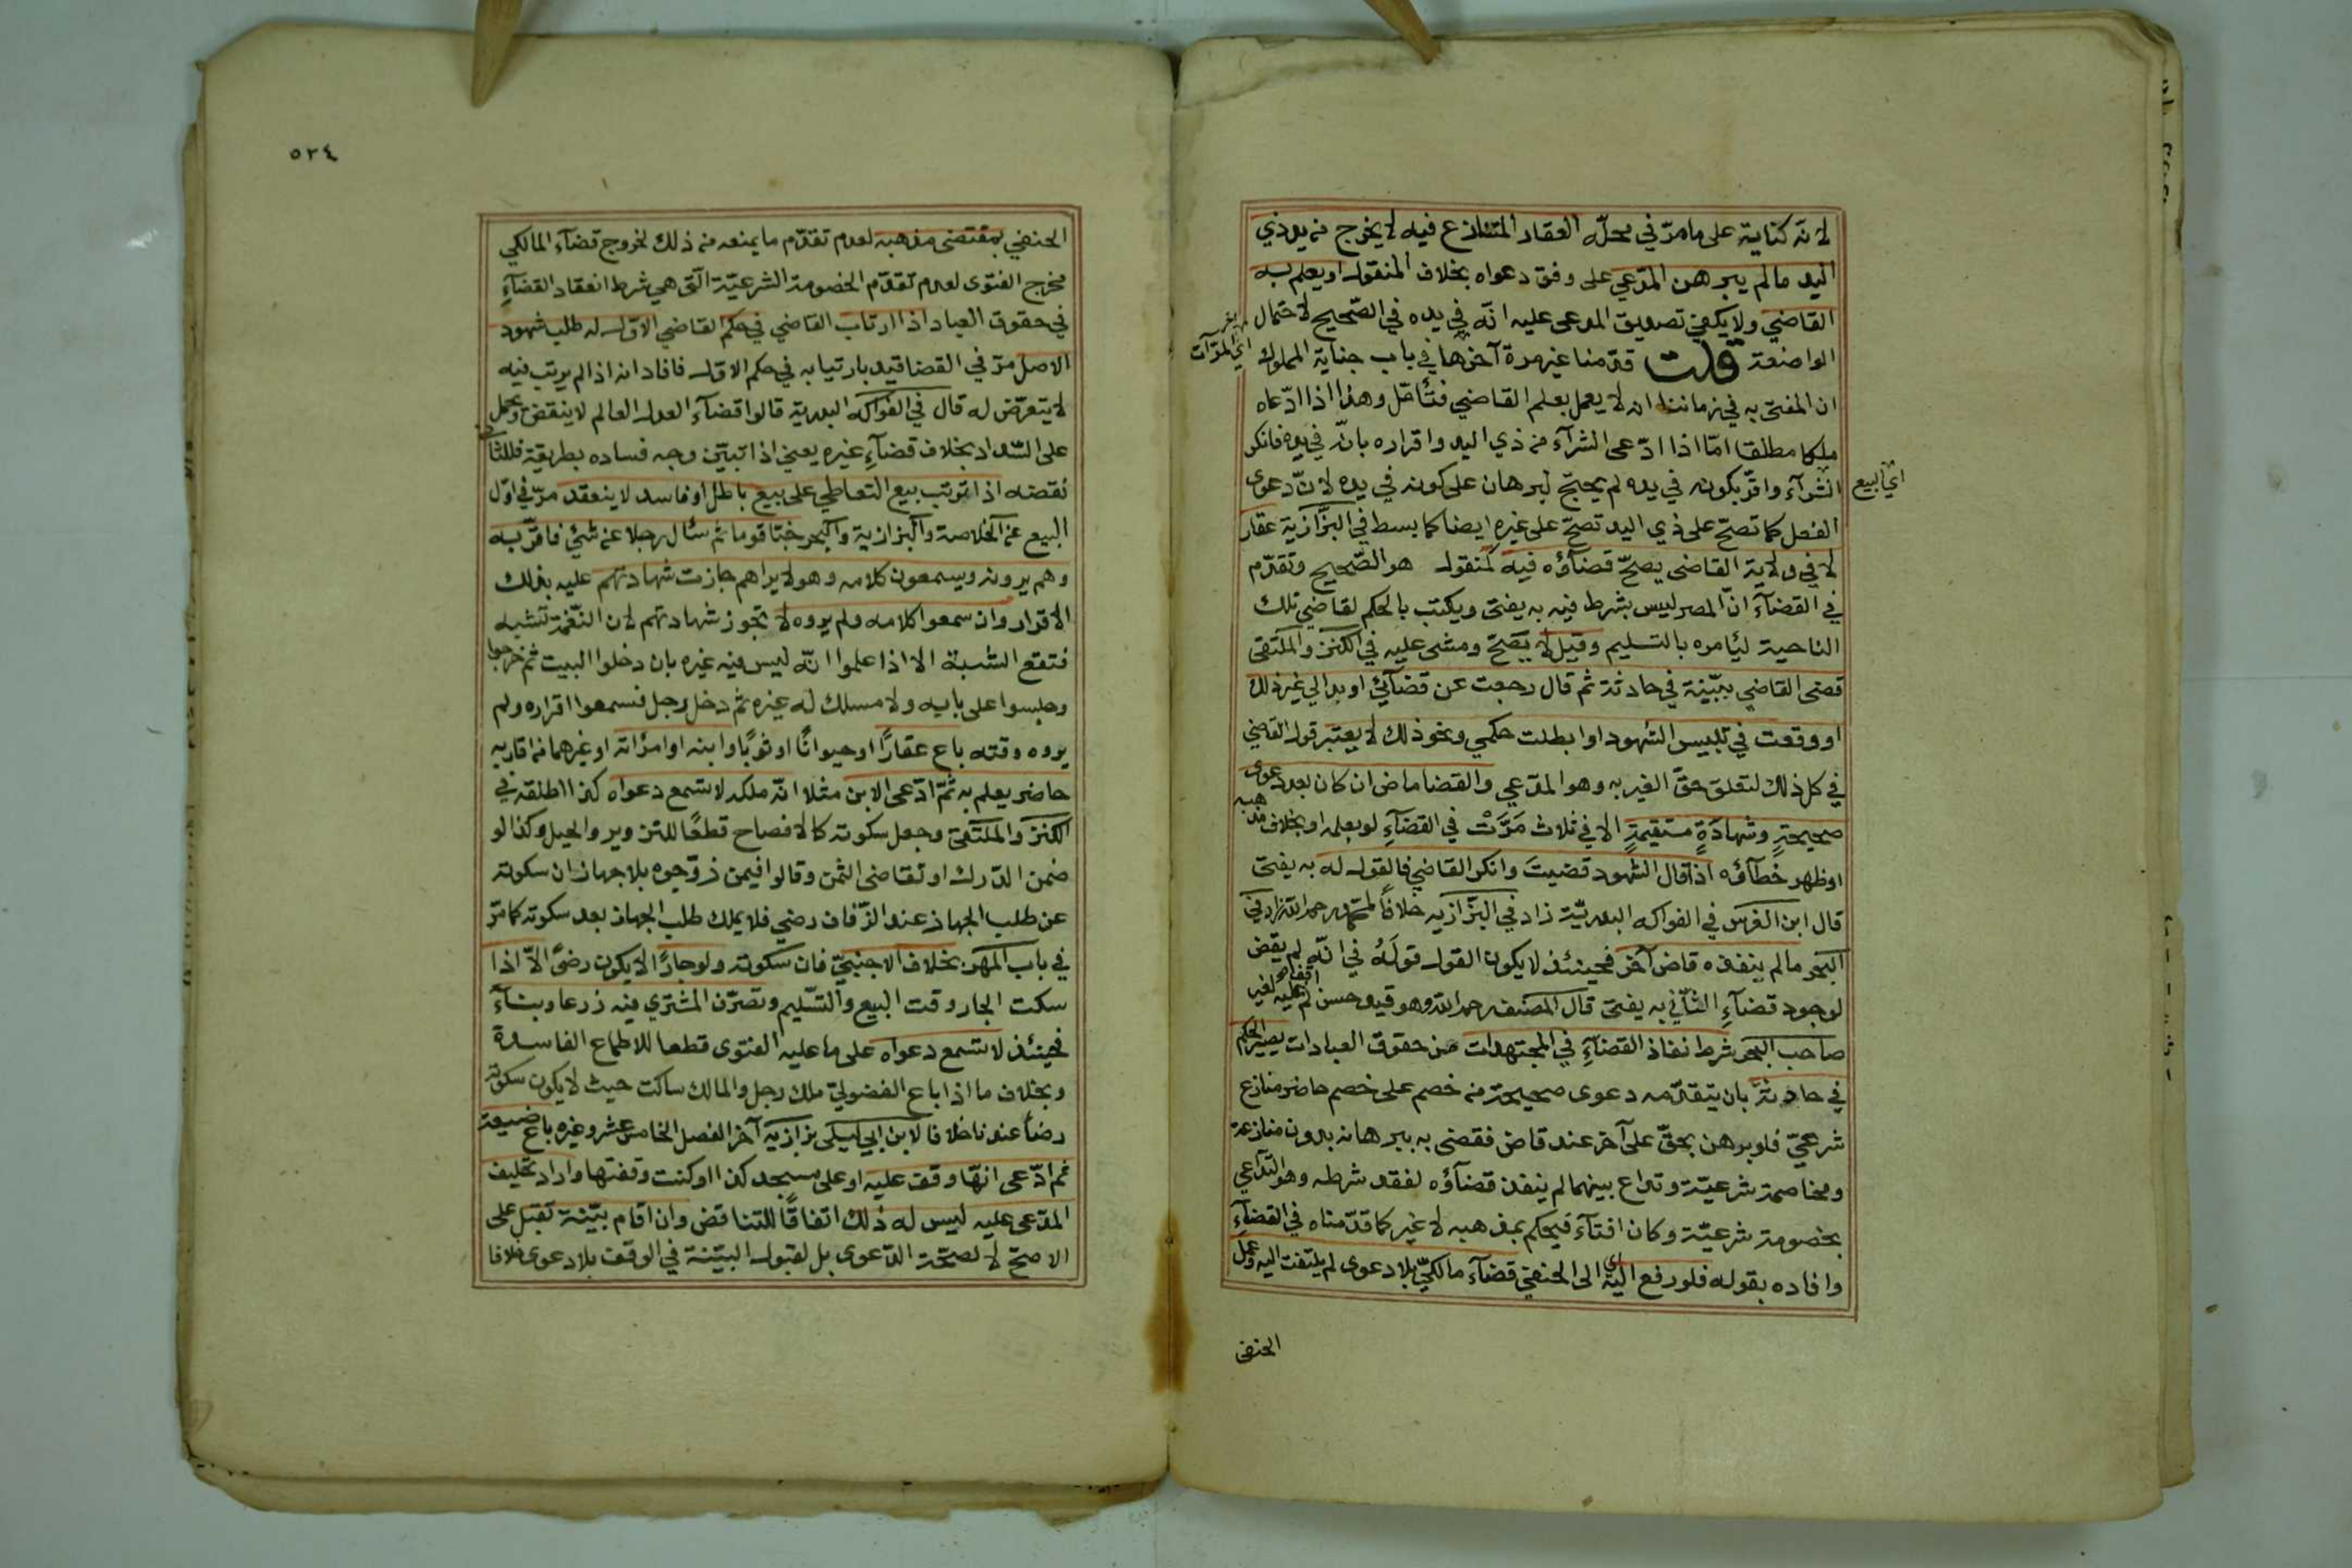 لانه كتابة على ما مرّ في محلّه العقار المتنازع فيه لا يخرج من يد ذي
اليد ما لم يبرهن المدّعي على وفق دعواه بخلاف المنقول او يعلم به
القاضي ولا يكفي تصديق المدعى عليه انّه في يده في الصّحيح لاحتمال
المواضعة قلت قدّمنا غير مرة آخرها في باب جناية المملوك
اي المرّات
ان المفتى به في زماننا انه لا يعمل بعلم القاضي فتأمّل وهذا اذا ادّعاه
ملكا مطلقا امّا اذا ادّعى الشرآء من ذي اليد واقراره بانّه في يده فانكر
الشرآء واقرّ بكونه في يده لم يحتج لبرهان على كونه في يده لانّ دعوى
اي البيع
الفعل كما تصحّ على ذي اليد تصحّ على غيره ايضا كما بسط في البزّازية عقار
لا في ولاية القاضي يصحّ قضاؤه فيه كمنقول هو الصّحيح وتقدّم
في القضآء انّ المصر ليس بشرط فيه به يفتى ويكتب بالحكم لقاضي تلك
الناحية ليأمره بالتسليم وقيل لا يصحّ ومشى عليه في الكنز والملتقى
قضى القاضي ببيّنة في حادثة ثم قال رجعت عن قضآئي او بدا لي غير ذلك
او وقعت في تلبيس الشهود او ابطلت حكمي ونحو ذلك لا يعتبر قول القاضي
في كل ذلك لتعلق حقّ الغير به وهو المدّعي والقضا ماض ان كان بعد دعوى
صحيحةٍ وشهادَةٍ مستقيمةٍ الا في ثلاث مَرَّتْ في القضآءِ لو بعلمه او بخلاف مذهبه
او ظهر خَطآؤه اذا قال الشهود قضيتَ وانكر القاضي فالقول له به يفتى
قال ابن الغرس في الفواكه البدريّة زاد في البزّازيه خلافًا لمحمد رحمه الله زاد في
البحر ما لم ينفذه قاض آخر فحينئذ لا يكون القول قولَهُ في انّه لم يقض
لوجود قضآءِ الثّاني به يفتى قال المصنف رحمه الله وهو قيد حسن لم اقف عليه لغير
صاحب البحر شرط نفاذ القضآءِ في المجتهدات من حقوق العبادات يصير الحكم
في حادثة بان يتقدّمه دعوى صحيحة من خصم على خصم حاضر منازع
شرعيّ فلو برهن بحقّ على آخر عند قاض فقضى به ببرهانه بدون منازعة
ومخاصمة شرعيّة وتداع بينهما لم ينفذ قضآؤه لفقد شرطه وهو التّداعي
بخصومة شرعيّة وكان افتآءَ فيحكم بمذهبه لا غير كما قدّمناه في القضآءِ
وافاده بقوله فلو رفع اليه اي الى الحنفي قضآء مالكيّ بلا دعوى لم يلتفت اليه وعمل
الحنفى
٥٢٤
الحنفي بمقتضى مذهبه لعدم تقدّم ما يمنعه من ذلك لخروج قضآء المالكي
مخرج الفتوى لعدم تقدّم الخصومة الشرعيّة الّتى هي شرط انعقاد القضآءِ
في حقوق العباد اذا ارتاب القاضي في حكم القاضي الاوّل له طلب شهود
الاصل مرّ في القضا قيد بارتيابه في حكم الاول فافاد انه اذا لم يرتب فيه
لا يتعرّض له قال في الفواكه البدرية قالوا قضآء العدل العالم لا ينقض ويحمل
على السّداد بخلاف قضآءِ غيره يعني اذا تبيّن وجه فساده بطريقة فللثاني
نقضه اذا ترتب بيع التعاطي على بيع باطل او فاسد لا ينعقد مرّ في اوّل
البيع عن الخلاصة والبزازية والبحر خبّا قوما ثم سئال رجلا عن شئي فاقرّ به
وهم يرونه ويسمعون كلامه وهو لا يراهم جازت شهادتهم عليه بذلك
الاقرار وان سمعوا كلامه ولم يروه لا تجوز شهادتهم لان النّغمة تشبه
فتقع الشبهة الا اذا علموا انّه ليس فيه غيره بان دخلوا البيت ثم خرجوا
وجلسوا على بابه ولا مسلك له غيره ثم دخل رجل فسمعوا اقراره ولم
يروه وقته باع عقارًا او حيوانًا او ثوبًا وابنه او امرأته او غيرهما من اقاربه
حاضر يعلم به ثمّ ادّعى الابن مثلا انّه ملكه لا تسمع دعواه كذا اطلقه في
الكنز والملتقى وجعل سكوته كالافصاح قطعًا للتزوير والحيل وكذا لو
ضمن الدّرك او تقاضى الثمن وقالوا فيمن زوّجوه بلا جهاز ان سكوته
عن طلب الجهاز عند الزّفاف رضي فلا يملك طلب الجهاز بعد سكوته كما مرّ
في باب المهر بخلاف الاجنبيّ فان سكوته ولو جارًا لا يكون رضىً الاّ اذا
سكت الجار وقت البيع والتسليم وتصرّف المشتري فيه زرعا وبنآءً
فحينئذ لا تسمع دعواه على ما عليه الفتوى قطعا للاطماع الفاسدة
وبخلاف ما اذا باع الفضوليّ ملك رجل والمالك ساكت حيث لا يكون سكوته
رضاً عندنا خلافا لابن ابي ليلى بزازية آخر الفصل الخامس عشر وغيره باع ضيعة
ثم ادّعى انّها وقف عليه او على مسجد كذا او كنت وقفتها واراد تحليف
المدّعى عليه ليس له ذلك اتفاقًا للتناقض وان اقام بيّنة تقبل على
الاصحّ لا لصحّة الدّعوى بل لقبول البيّنة في الوقف بلا دعوى خلافا